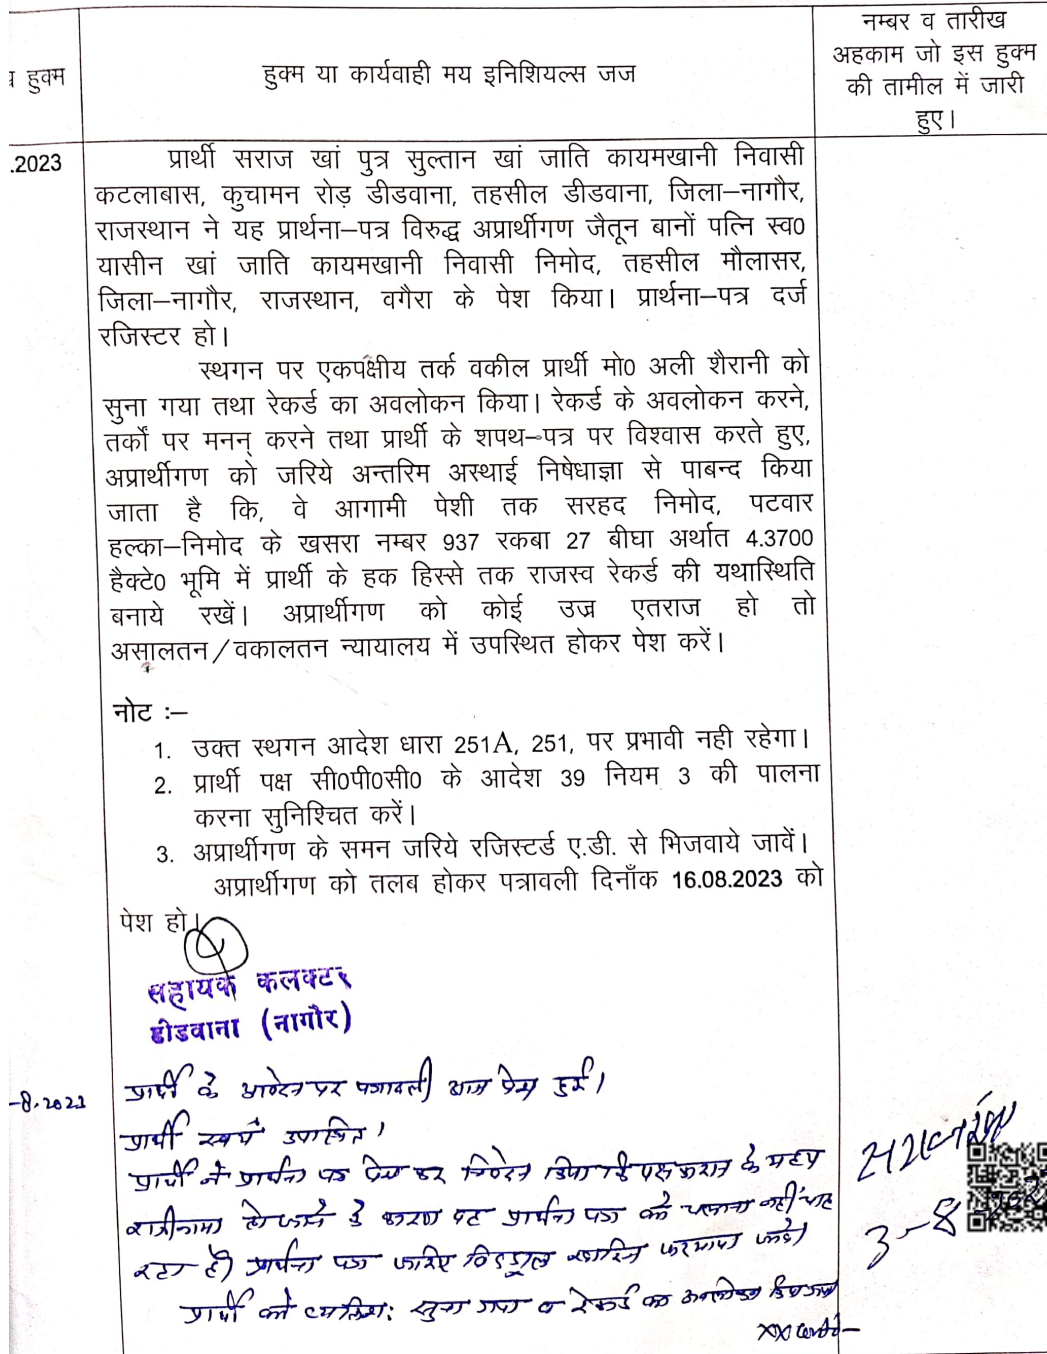 व हुक्म
हुक्म या कार्यवाही मय इनिशियल्स जज
नम्बर व तारीख
अहकाम जो इस हुक्म
की तामील में जारी
हुए।
.2023
प्रार्थी सराज खां पुत्र सुल्तान खां जाति कायमखानी निवासी
कटलाबास, कुचामन रोड़ डीडवाना, तहसील डीडवाना, जिला–नागौर,
राजस्थान ने यह प्रार्थना–पत्र विरुद्ध अप्रार्थीगण जैतून बानों पत्नि स्व0
यासीन खां जाति कायमखानी निवासी निमोद, तहसील मौलासर,
जिला–नागौर, राजस्थान, वगैरा के पेश किया। प्रार्थना–पत्र दर्ज
रजिस्टर हो।
स्थगन पर एकपक्षीय तर्क वकील प्रार्थी मो0 अली शैरानी को
सुना गया तथा रेकर्ड का अवलोकन किया। रेकर्ड के अवलोकन करने,
तर्कों पर मनन् करने तथा प्रार्थी के शपथ–पत्र पर विश्वास करते हुए,
अप्रार्थीगण को जरिये अन्तरिम अस्थाई निषेधाज्ञा से पाबन्द किया
जाता है कि, वे आगामी पेशी तक सरहद निमोद, पटवार
हल्का–निमोद के खसरा नम्बर 937 रकबा 27 बीघा अर्थात 4.3700
हैक्टे0 भूमि में प्रार्थी के हक हिस्से तक राजस्व रेकर्ड की यथास्थिति
बनाये रखें। अप्रार्थीगण को कोई उज्र एतराज हो तो
असालतन/वकालतन न्यायालय में उपस्थित होकर पेश करें।
नोट :–
1. उक्त स्थगन आदेश धारा 251A, 251, पर प्रभावी नही रहेगा।
2. प्रार्थी पक्ष सी0पी0सी0 के आदेश 39 नियम 3 की पालना
करना सुनिश्चित करें।
3. अप्रार्थीगण के समन जरिये रजिस्टर्ड ए.डी. से भिजवाये जावें।
अप्रार्थीगण को तलब होकर पत्रावली दिनाँक 16.08.2023 को
पेश हो।
सहायक कलक्टर
डीडवाना (नागौर)
-8.2023
प्रार्थी के आवेदन पर पत्रावली आज पेश हुई।
प्रार्थी स्वयं उपस्थित।
प्रार्थी ने प्रार्थना पत्र पेश कर निवेदन किया कि पक्षकारान के मध्य
राजीनामा हो जाने के कारण यह प्रार्थना पत्र को चलाना नहीं चाह
रहा है। प्रार्थना पत्र जरिए विड्रॉल खारिज फरमाया जावे।
प्रार्थी को सुना गया व रेकर्ड का अवलोकन किया गया
3-8